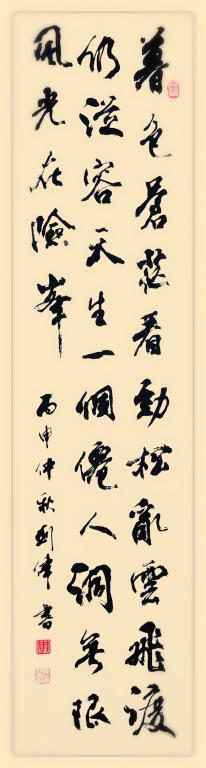 暮色蒼茫看勁松亂雲飛渡
仍從容天生一個僊人洞無限
風光在險峰
丙申仲秋剑偉書